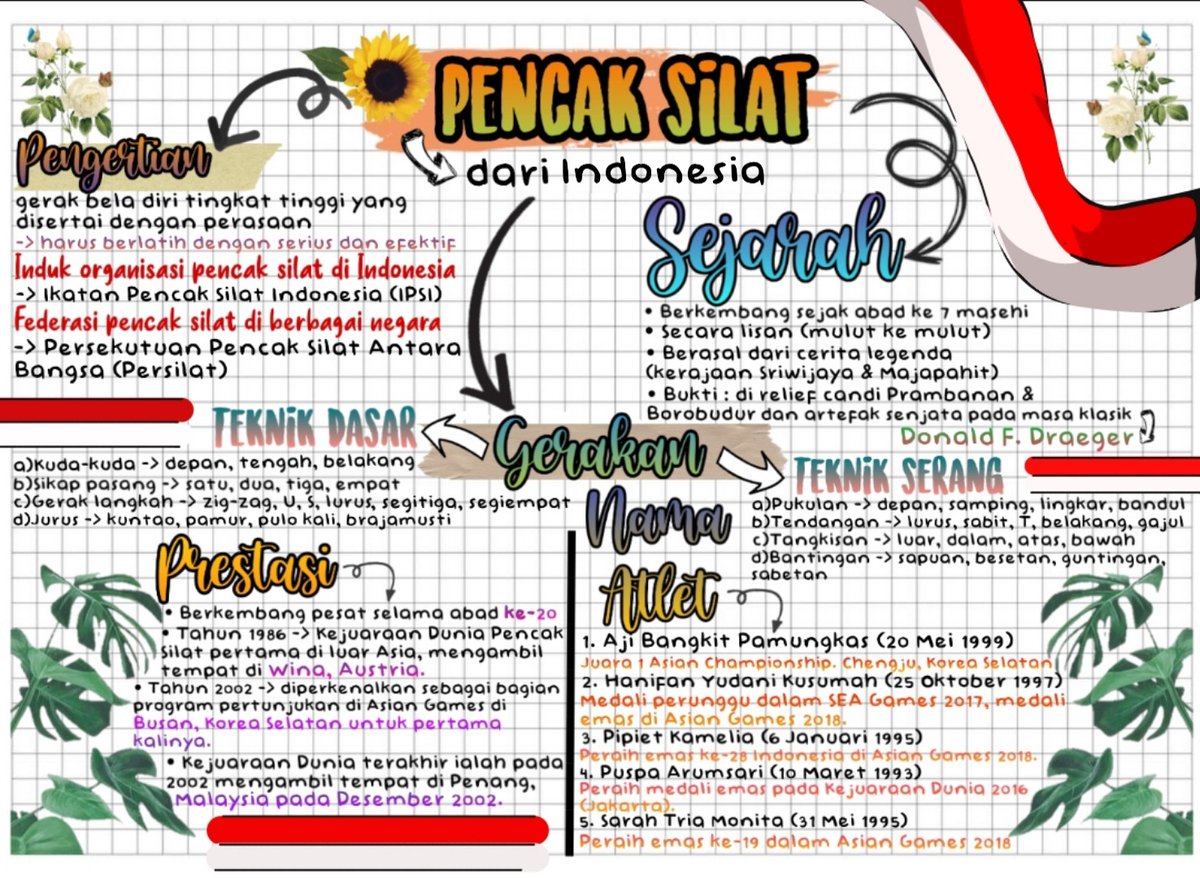 PENCAK SiLAT
dari Indonesia
Pengertian
gerak bela diri tingkat tinggi yang
disertai dengan perasaan
-> harus berlatih dengan serius dan efektif
Induk organisasi pencak silat di Indonesia
-> Ikatan Pencak Silat Indonesia (IPSI)
Federasi pencak silat di berbagai negara
-> Persekutuan Pencak Silat Antara
Bangsa (Persilat)
Sejarah
• Berkembang sejak abad ke 7 masehi
• Secara lisan (mulut ke mulut)
• Berasal dari cerita legenda
(kerajaan Sriwijaya & Majapahit)
• Bukti : di relief candi Prambanan &
Borobudur dan artefak senjata pada masa klasik
Donald F. Draeger
Gerakan
TEKNiK DASAR
a)Kuda-kuda -> depan, tengah, belakang
b)Sikap pasang -> satu, dua, tiga, empat
c)Gerak langkah -> zig-zag, U, S, lurus, segitiga, segiempat
d)Jurus -> kuntao, pamur, pulo kali, brajamusti
TEKNiK SERANG
a)Pukulan -> depan, samping, lingkar, bandul
b)Tendangan -> lurus, sabit, T, belakang, gajul
c)Tangkisan -> luar, dalam, atas, bawah
d)Bantingan -> sapuan, besetan, guntingan,
sabetan
Prestasi
• Berkembang pesat selama abad ke-20
• Tahun 1986 -> Kejuaraan Dunia Pencak
Silat pertama di luar Asia, mengambil
tempat di Wina, Austria.
• Tahun 2002 -> diperkenalkan sebagai bagian
program pertunjukan di Asian Games di
Busan, Korea Selatan untuk pertama
kalinya.
• Kejuaraan Dunia terakhir ialah pada
2002 mengambil tempat di Penang,
Malaysia pada Desember 2002.
Nama
Atlet
1. Aji Bangkit Pamungkas (20 Mei 1999)
Juara 1 Asian Championship. Chengju, Korea Selatan
2. Hanifan Yudani Kusumah (25 Oktober 1997)
Medali perunggu dalam SEA Games 2017, medali
emas di Asian Games 2018.
3. Pipiet Kamelia (6 Januari 1995)
Peraih emas ke-28 Indonesia di Asian Games 2018.
4. Puspa Arumsari (10 Maret 1993)
Peraih medali emas pada Kejuaraan Dunia 2016
(Jakarta).
5. Sarah Tria Monita (31 Mei 1995)
Peraih emas ke-19 dalam Asian Games 2018